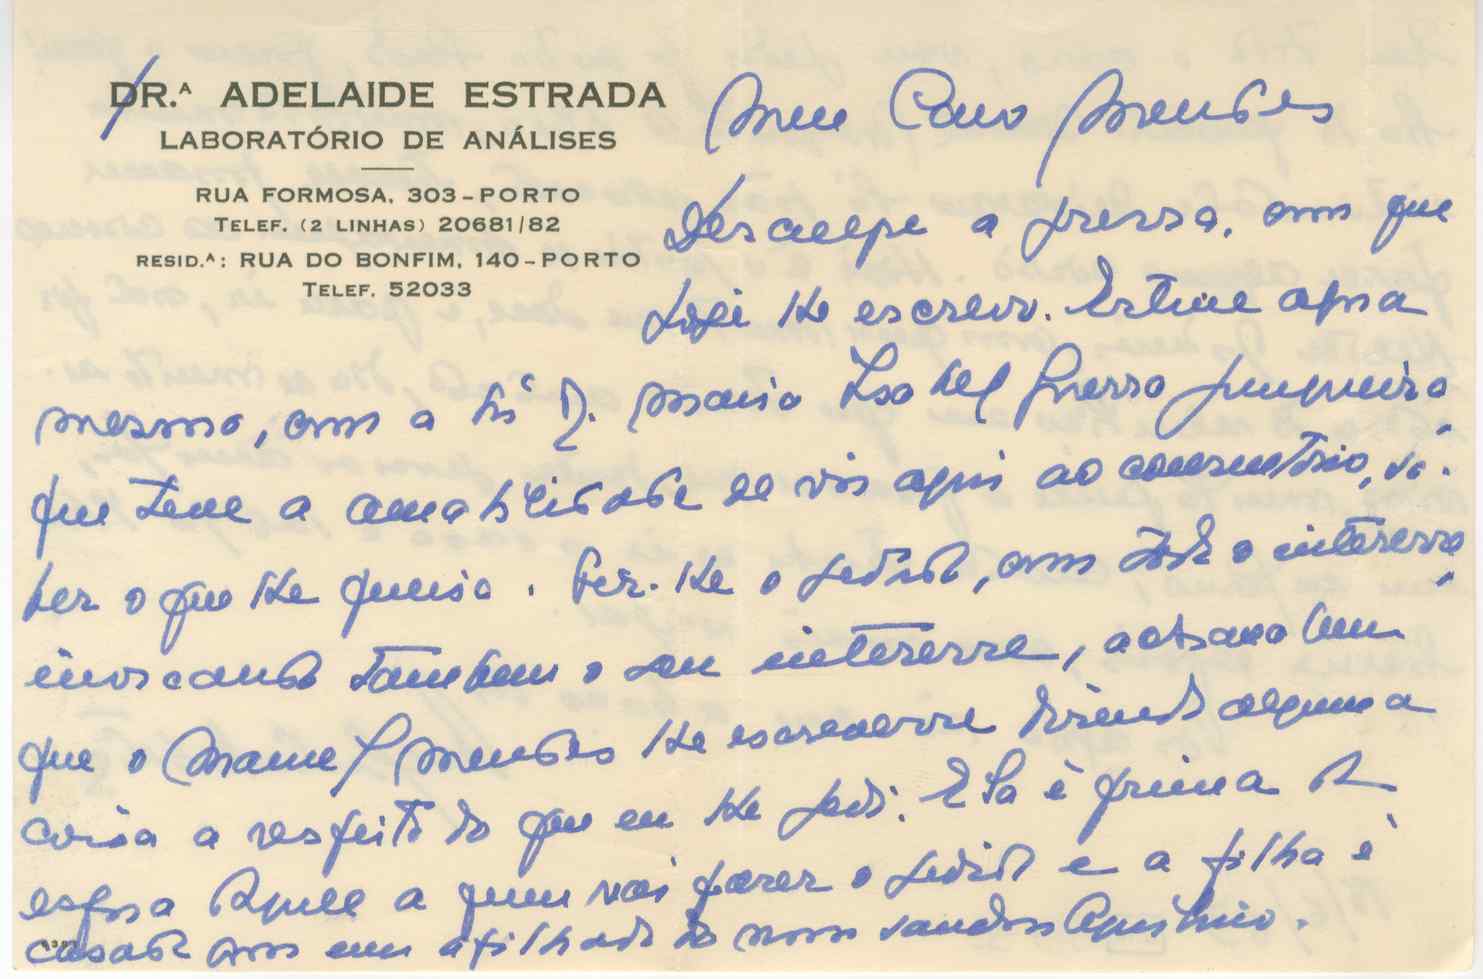 DR.ᴬ ADELAIDE ESTRADA
LABORATÓRIO DE ANÁLISES
RUA FORMOSA, 303-PORTO
TELEF. (2 LINHAS) 20681/82
RESID.ᴬ: RUA DO BONFIM, 140-PORTO
TELEF. 52033
Meu Caro Mendes
Desculpe a pressa, com que
hoje lhe escrevo. Estive agora
mesmo, com a Srª D. Maria Isabel Guerra Junqueiro,
que teve a amabilidade de vir aqui ao consultório, sa-
ber o que lhe queria. Fiz-lhe o pedido, com todo o interesse
invocando também o seu interesse, achava bem
que o Manuel Mendes lhe escrevesse dizendo alguma
coisa a respeito do que eu lhe pedi. Ela é prima da
esposa daquele a quem vai fazer o pedido e a filha é
casada com um afilhado do nosso saudoso Aquilino.